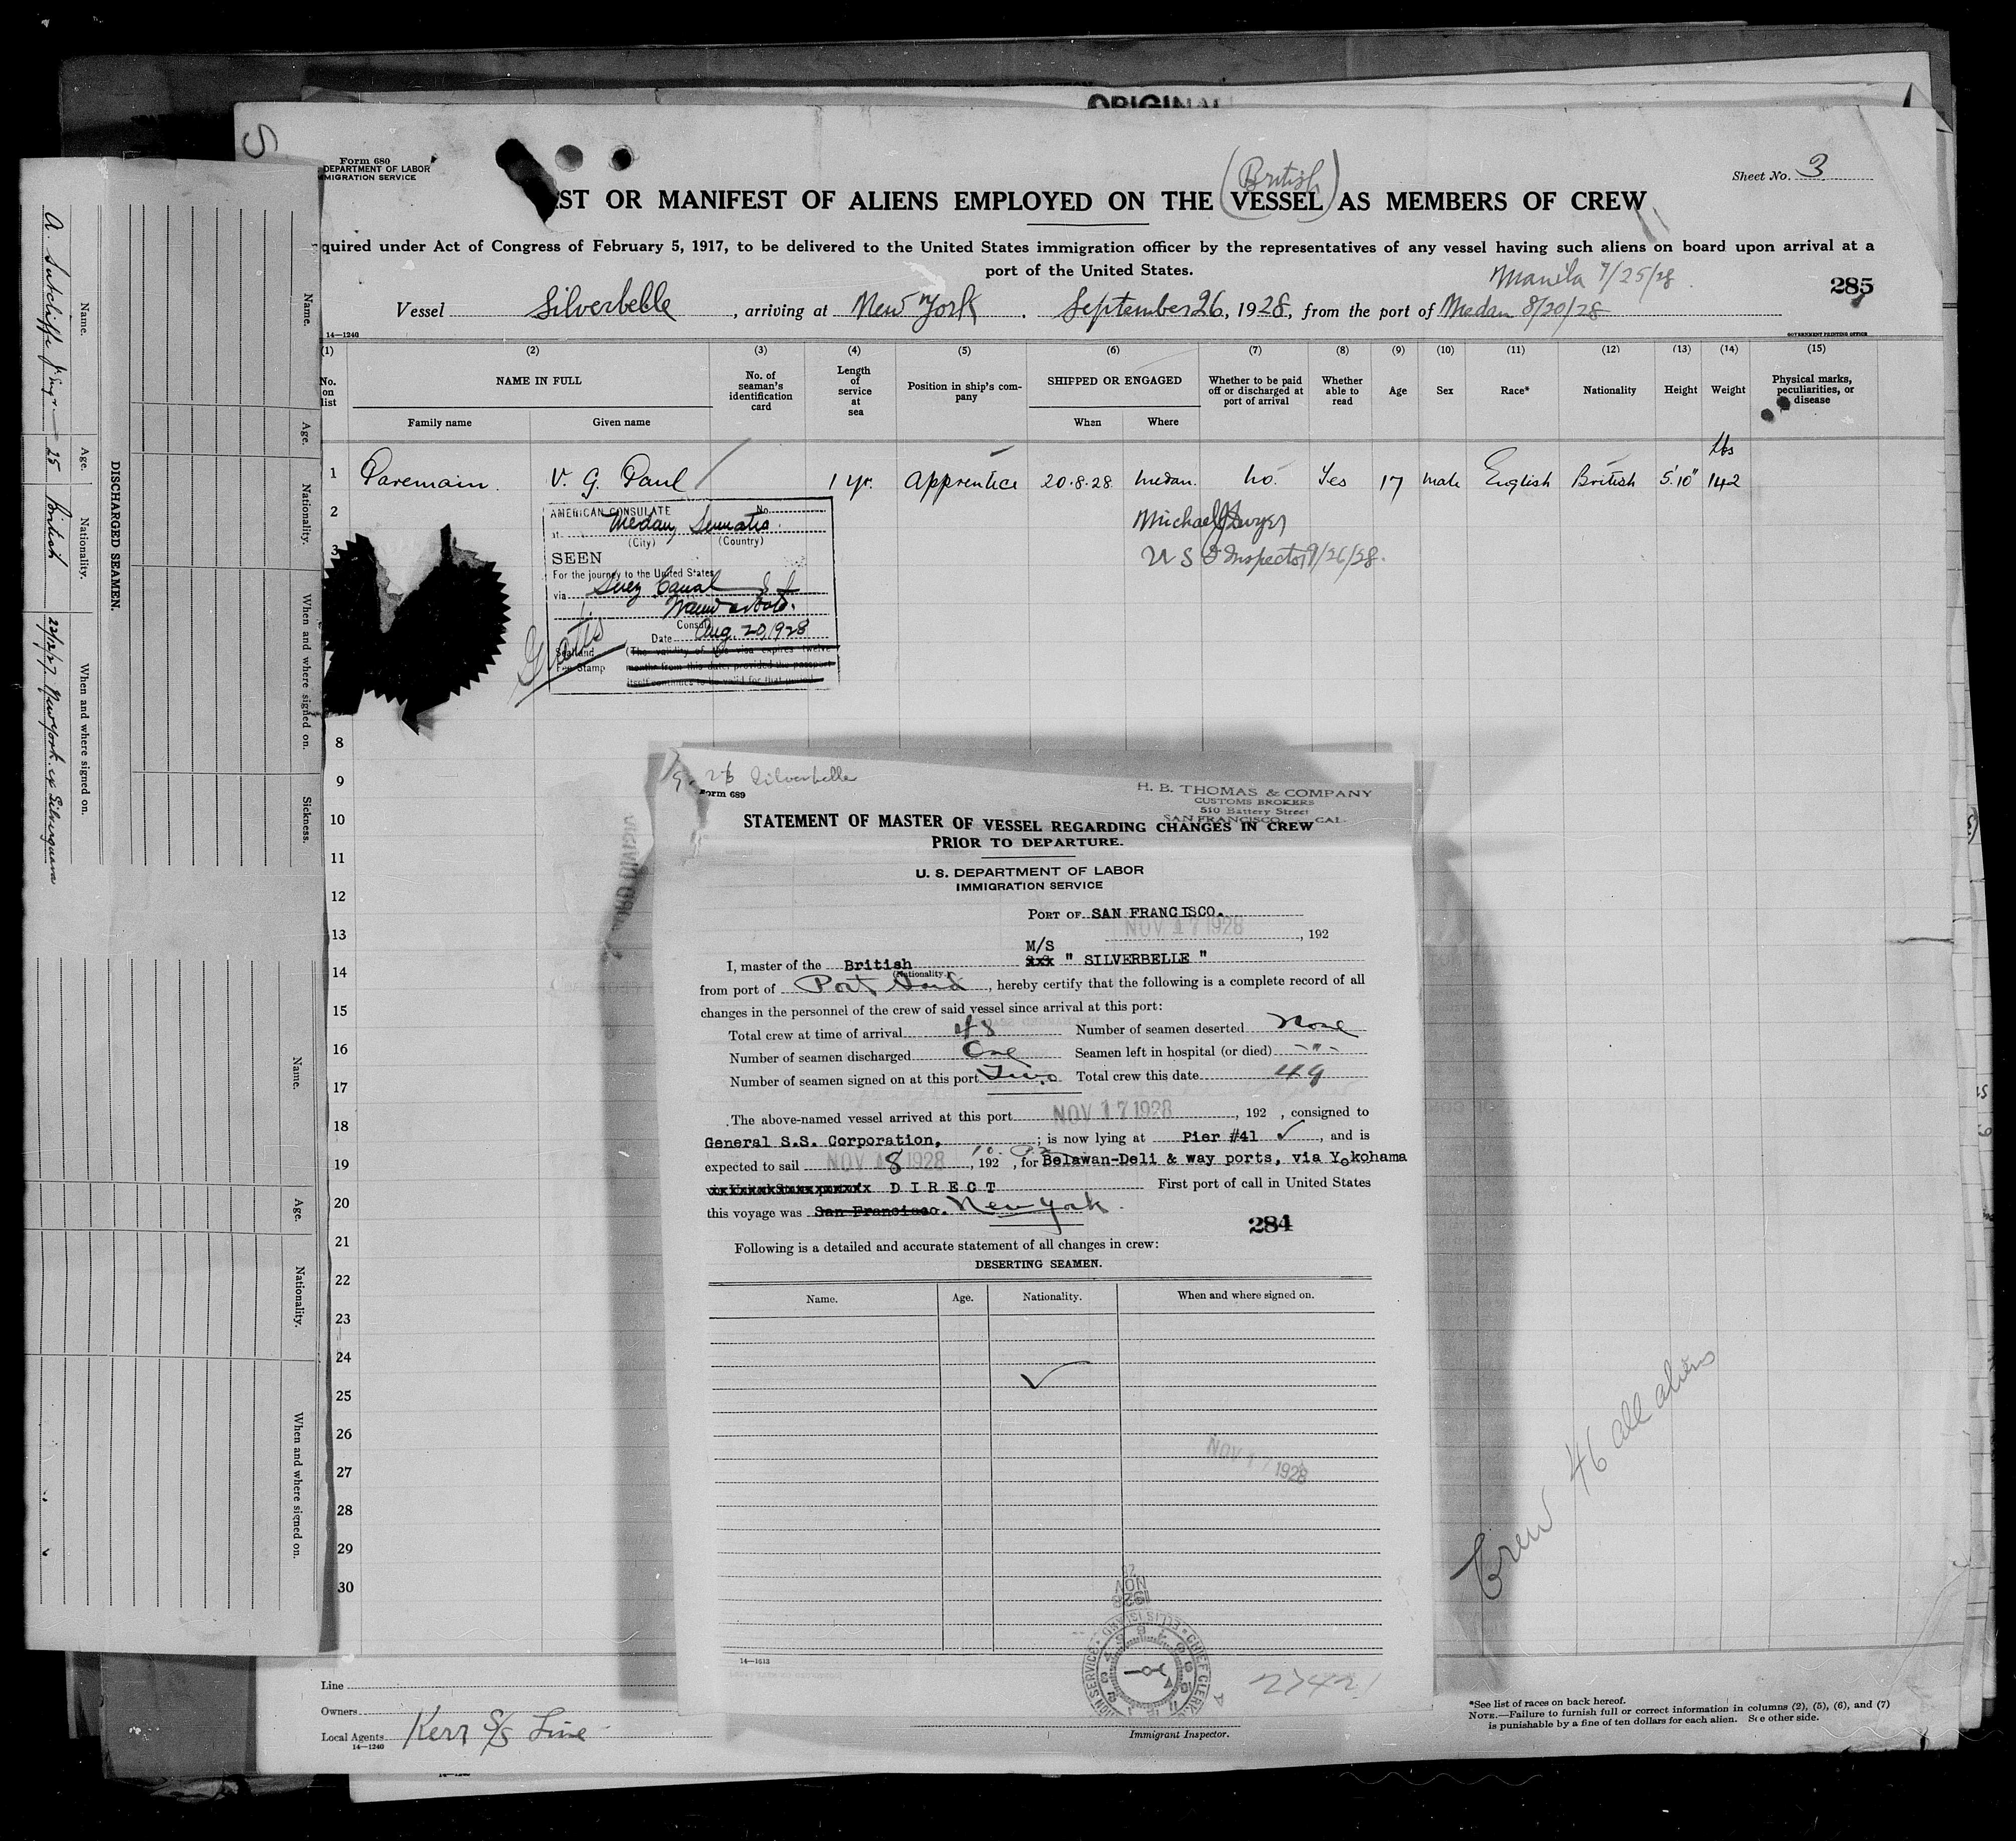 ORIGINAL
Form 680
DEPARTMENT OF LABOR
IMMIGRATION SERVICE
(British)
Sheet No. 3
LIST OR MANIFEST OF ALIENS EMPLOYED ON THE VESSEL AS MEMBERS OF CREW
quired under Act of Congress of February 5, 1917, to be delivered to the United States immigration officer by the representatives of any vessel having such aliens on board upon arrival at a
port of the United States.
Manila 7/25/28
285
Vessel Silverbelle, arriving at New York. September 26, 1928, from the port of Medan 8/20/28
14—1240
GOVERNMENT PRINTING OFFICE
(1) (2) (3) (4) (5) (6) (7) (8) (9) (10) (11) (12) (13) (14) (15)
No. on list
NAME IN FULL
Family name
Given name
No. of seaman's identification card
Length of service at sea
Position in ship's company
SHIPPED OR ENGAGED
When
Where
Whether to be paid off or discharged at port of arrival
Whether able to read
Age
Sex
Race*
Nationality
Height
Weight
Physical marks, peculiarities, or disease
lbs
1 Paremain. V. G. Paul 1 yr. Apprentice 20.8.28 Medan. No. Yes 17 Male English British 5'10" 142
2
3
AMERICAN CONSULATE No.
at Medan, Sumatra
(City) (Country)
SEEN
For the journey to the United States
via Suez Canal
Consul
Date Aug. 20, 1928
Seal and
Fee Stamp
(The validity of this visa expires twelve
months from this date, provided the passport
itself continues to be valid for that period
Gratis
Michael J Dwyer
U S I Inspector 9/26/28.
8
9
10
11
12
13
14
15
16
17
18
19
20
21
22
23
24
25
26
27
28
29
30
Silverbelle
Form 689
H. B. THOMAS & COMPANY
CUSTOMS BROKERS
510 Battery Street
SAN FRANCISCO, CAL.
STATEMENT OF MASTER OF VESSEL REGARDING CHANGES IN CREW
PRIOR TO DEPARTURE.
U. S. DEPARTMENT OF LABOR
IMMIGRATION SERVICE
PORT OF SAN FRANCISCO.
NOV 17 1928, 192
M/S
I, master of the British xxx " SILVERBELLE "
(Nationality.)
from port of Port Said, hereby certify that the following is a complete record of all
changes in the personnel of the crew of said vessel since arrival at this port:
Total crew at time of arrival 48 Number of seamen deserted None
Number of seamen discharged One Seamen left in hospital (or died) -"-
Number of seamen signed on at this port Two Total crew this date 49
The above-named vessel arrived at this port NOV 17 1928, 192 , consigned to
General S.S. Corporation, ; is now lying at Pier #41 ✓, and is
expected to sail NOV 18 1928, 192 , for Belawan-Deli & way ports, via Yokohama
DIRECT First port of call in United States
this voyage was San Francisco. New York.
284
Following is a detailed and accurate statement of all changes in crew:
DESERTING SEAMEN.
Name. Age. Nationality. When and where signed on.
NOV 17 1928
1928
NOV
14—1613
2742
Immigrant Inspector.
Crew 46 all aliens
Line
Owners
Local Agents Kerr S/S Line
14—1240
*See list of races on back hereof.
NOTE.—Failure to furnish full or correct information in columns (2), (5), (6), and (7)
is punishable by a fine of ten dollars for each alien. See other side.
DISCHARGED SEAMEN.
Name. Age. Nationality. When and where signed on.
A. Sutcliffe 25 British 23/2/27 New York. ex Silverguava
Name. Age. Nationality. When and where signed on. Sickness.
Name. Age. Nationality. When and where signed on.